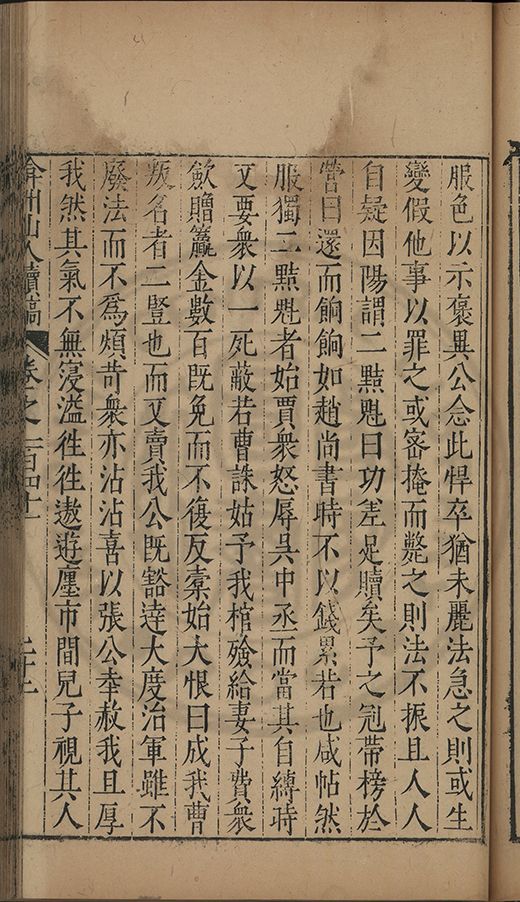 服色以示褒異公念此悍卒猶未麗法急之則或生
變假他事以罪之或密掩而斃之則法不振且人人
自疑因陽謂二點魁曰功差足贖矣予之冠帶榜於
營曰還而餉餉如趙尚書時不以錢累若也咸帖然
服獨二點魁者始賈衆怒辱吳中丞而當其自縛時
又要衆以一死蔽若曹誅姑予我棺殮給妻子費衆
歛贈籯金數百既免而不復反橐始大恨曰成我曹
叛名者二豎也而又賣我公既豁逹大度治軍雖不
廢法而不爲煩苛衆亦沾沾喜以張公奉赦我且厚
我然其氣不無寖溢徃徃遨遊廛市間兒子視其人
弇州山人續稿 卷之一百四十一